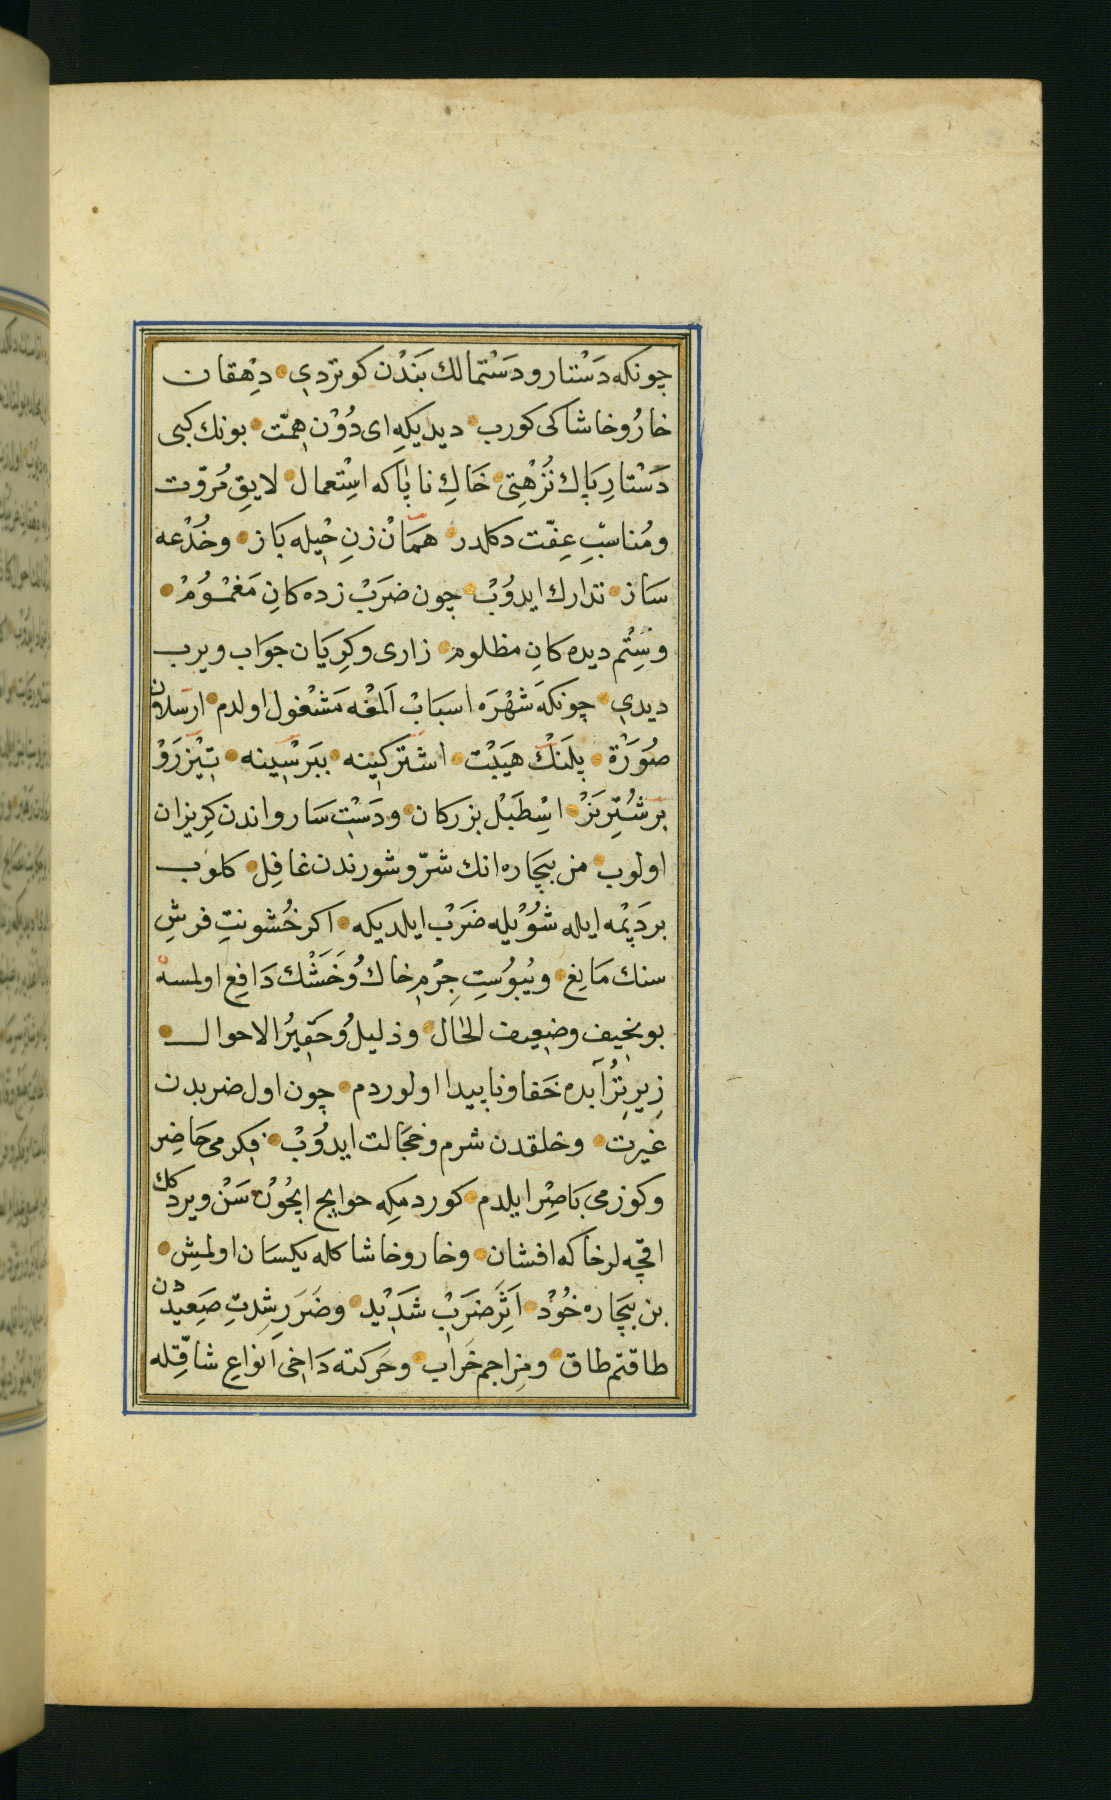 چونکه دَسْتار و دَسْتمالك بَنَدْن کوتردی دِهْقان
خارُ و خاشاکی کورب دیدیکهِ ای دُوْن هِمّت بونك کبی
دَسْتارِ پَاك نُزْهِتی خَاكِ ناپَاکه اسْتِعمال لایِقِ مُروّت
ومُناسبِ عِفّت دکلدر هَمَانْ زنِ حِیله بَاز وخُدْعه
سَاز تدارك ایدوُبْ چون ضرَبْ زده کانِ مَغْمُومْ
وسِتْم دیده کانِ مظلوم زاری وکِریَان جوَاب ویرب
دیدی چونکهَ شهْرَه اسبَابْ اَلمغْه مَشْغول اولدم ارسَلان
صُورَتْ پلنَكْ هَیبَتْ اشتر کِینه ببَر سِینه تِیْزرَوْ
بر شُتِر نَرْ اسْطَبْل بزرکان ودَسْت ساروانـدن کِریزان
اولوب من بیچاره انك شرّ و شورندن غافِل کلوب
بر دَپْمه ایله شوُیْله ضرَبْ ایلدیکه اکر خُشونتِ فرشِ
سنك مَانِع ویُبوُستِ جِرْمِ خاك وُخَشْك دَافِع اولمسه
بو نخِیف وضعِیف الحَال وذلیلُ وحَقِیرُ الاحوال
زِیر تُرابده خَفا وناپیدا اولوردم چون اول ضربدن
غیرت وخلقدن شرم وخجَالت ایدُوبْ فِکرمی حَاضِر
وکوزمی بَاصِرْ ایلدم کوردمکِه حوایج ایچُوْن سَنْ ویردکك
اقچه لر خاکه افشان وخار و خاشاکله یکسَان اولمش
بن بیچاره خُوْد اَثَرِ ضرَبْ شدَیْد وضَرَرِ شِدتِ صَعِیددن
طاقتم طاق ومِزاجم خرَاب وحَرکته دَاخی انواعِ شاقّله